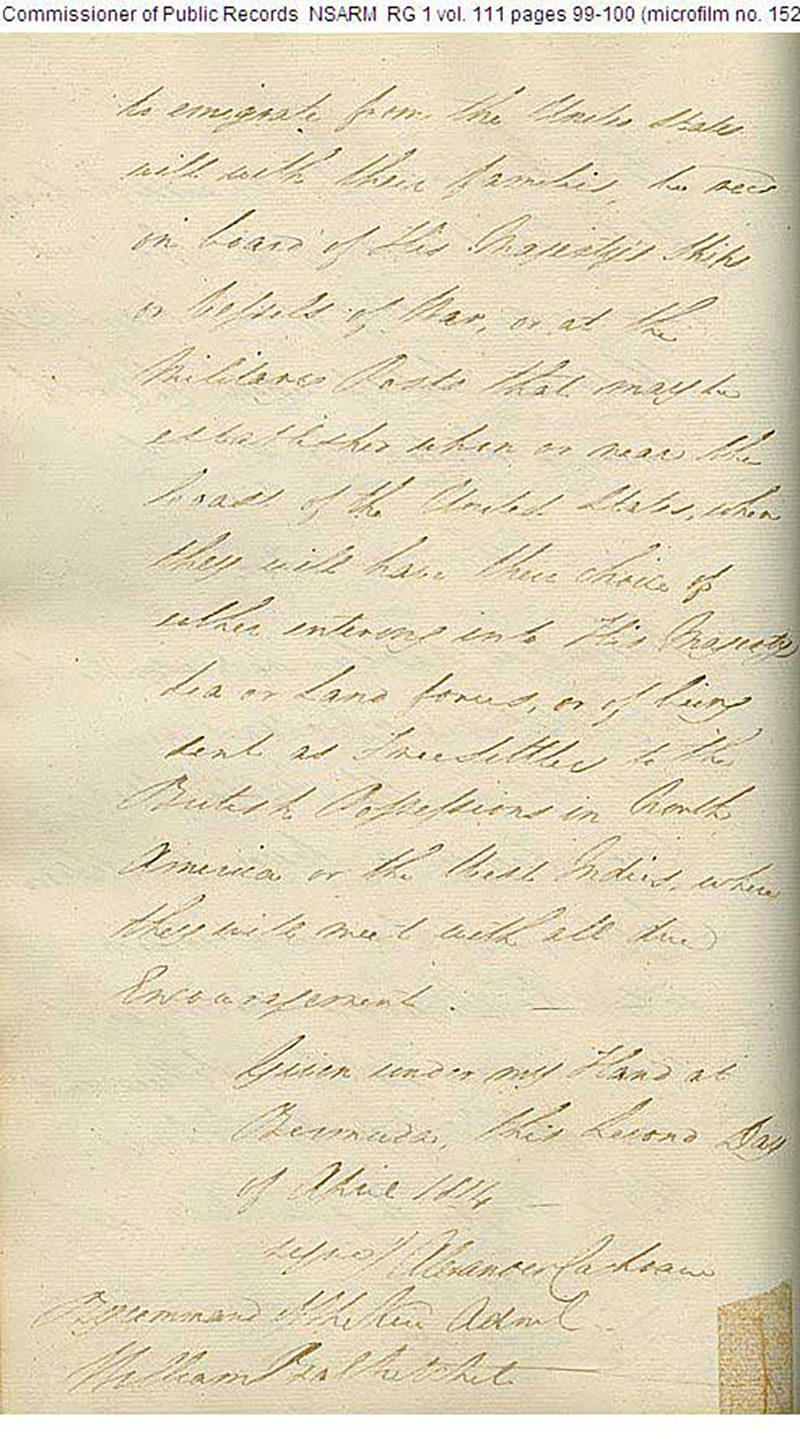 Commissioner of Public Records NSARM RG 1 vol. 111 pages 99-100 (microfilm no. 152
to emigrate from the United States
will with their families, be recd
on board of His Majesty's Ships
or Vessels of War, or at the
Military Posts that may be
established upon or near the
Coast of the United States, when
they will have their choice of
either entering into His Majesty's
Sea or Land forces, or of being
sent as Free Settlers to the
British Possessions in North
America or the West Indies, where
they will meet with all due
Encouragement.
Given under my Hand at
Bermuda, this Second Day
of April 1814
signed Alexander Cochrane
By command of the Vice Adml
William Balhetchet